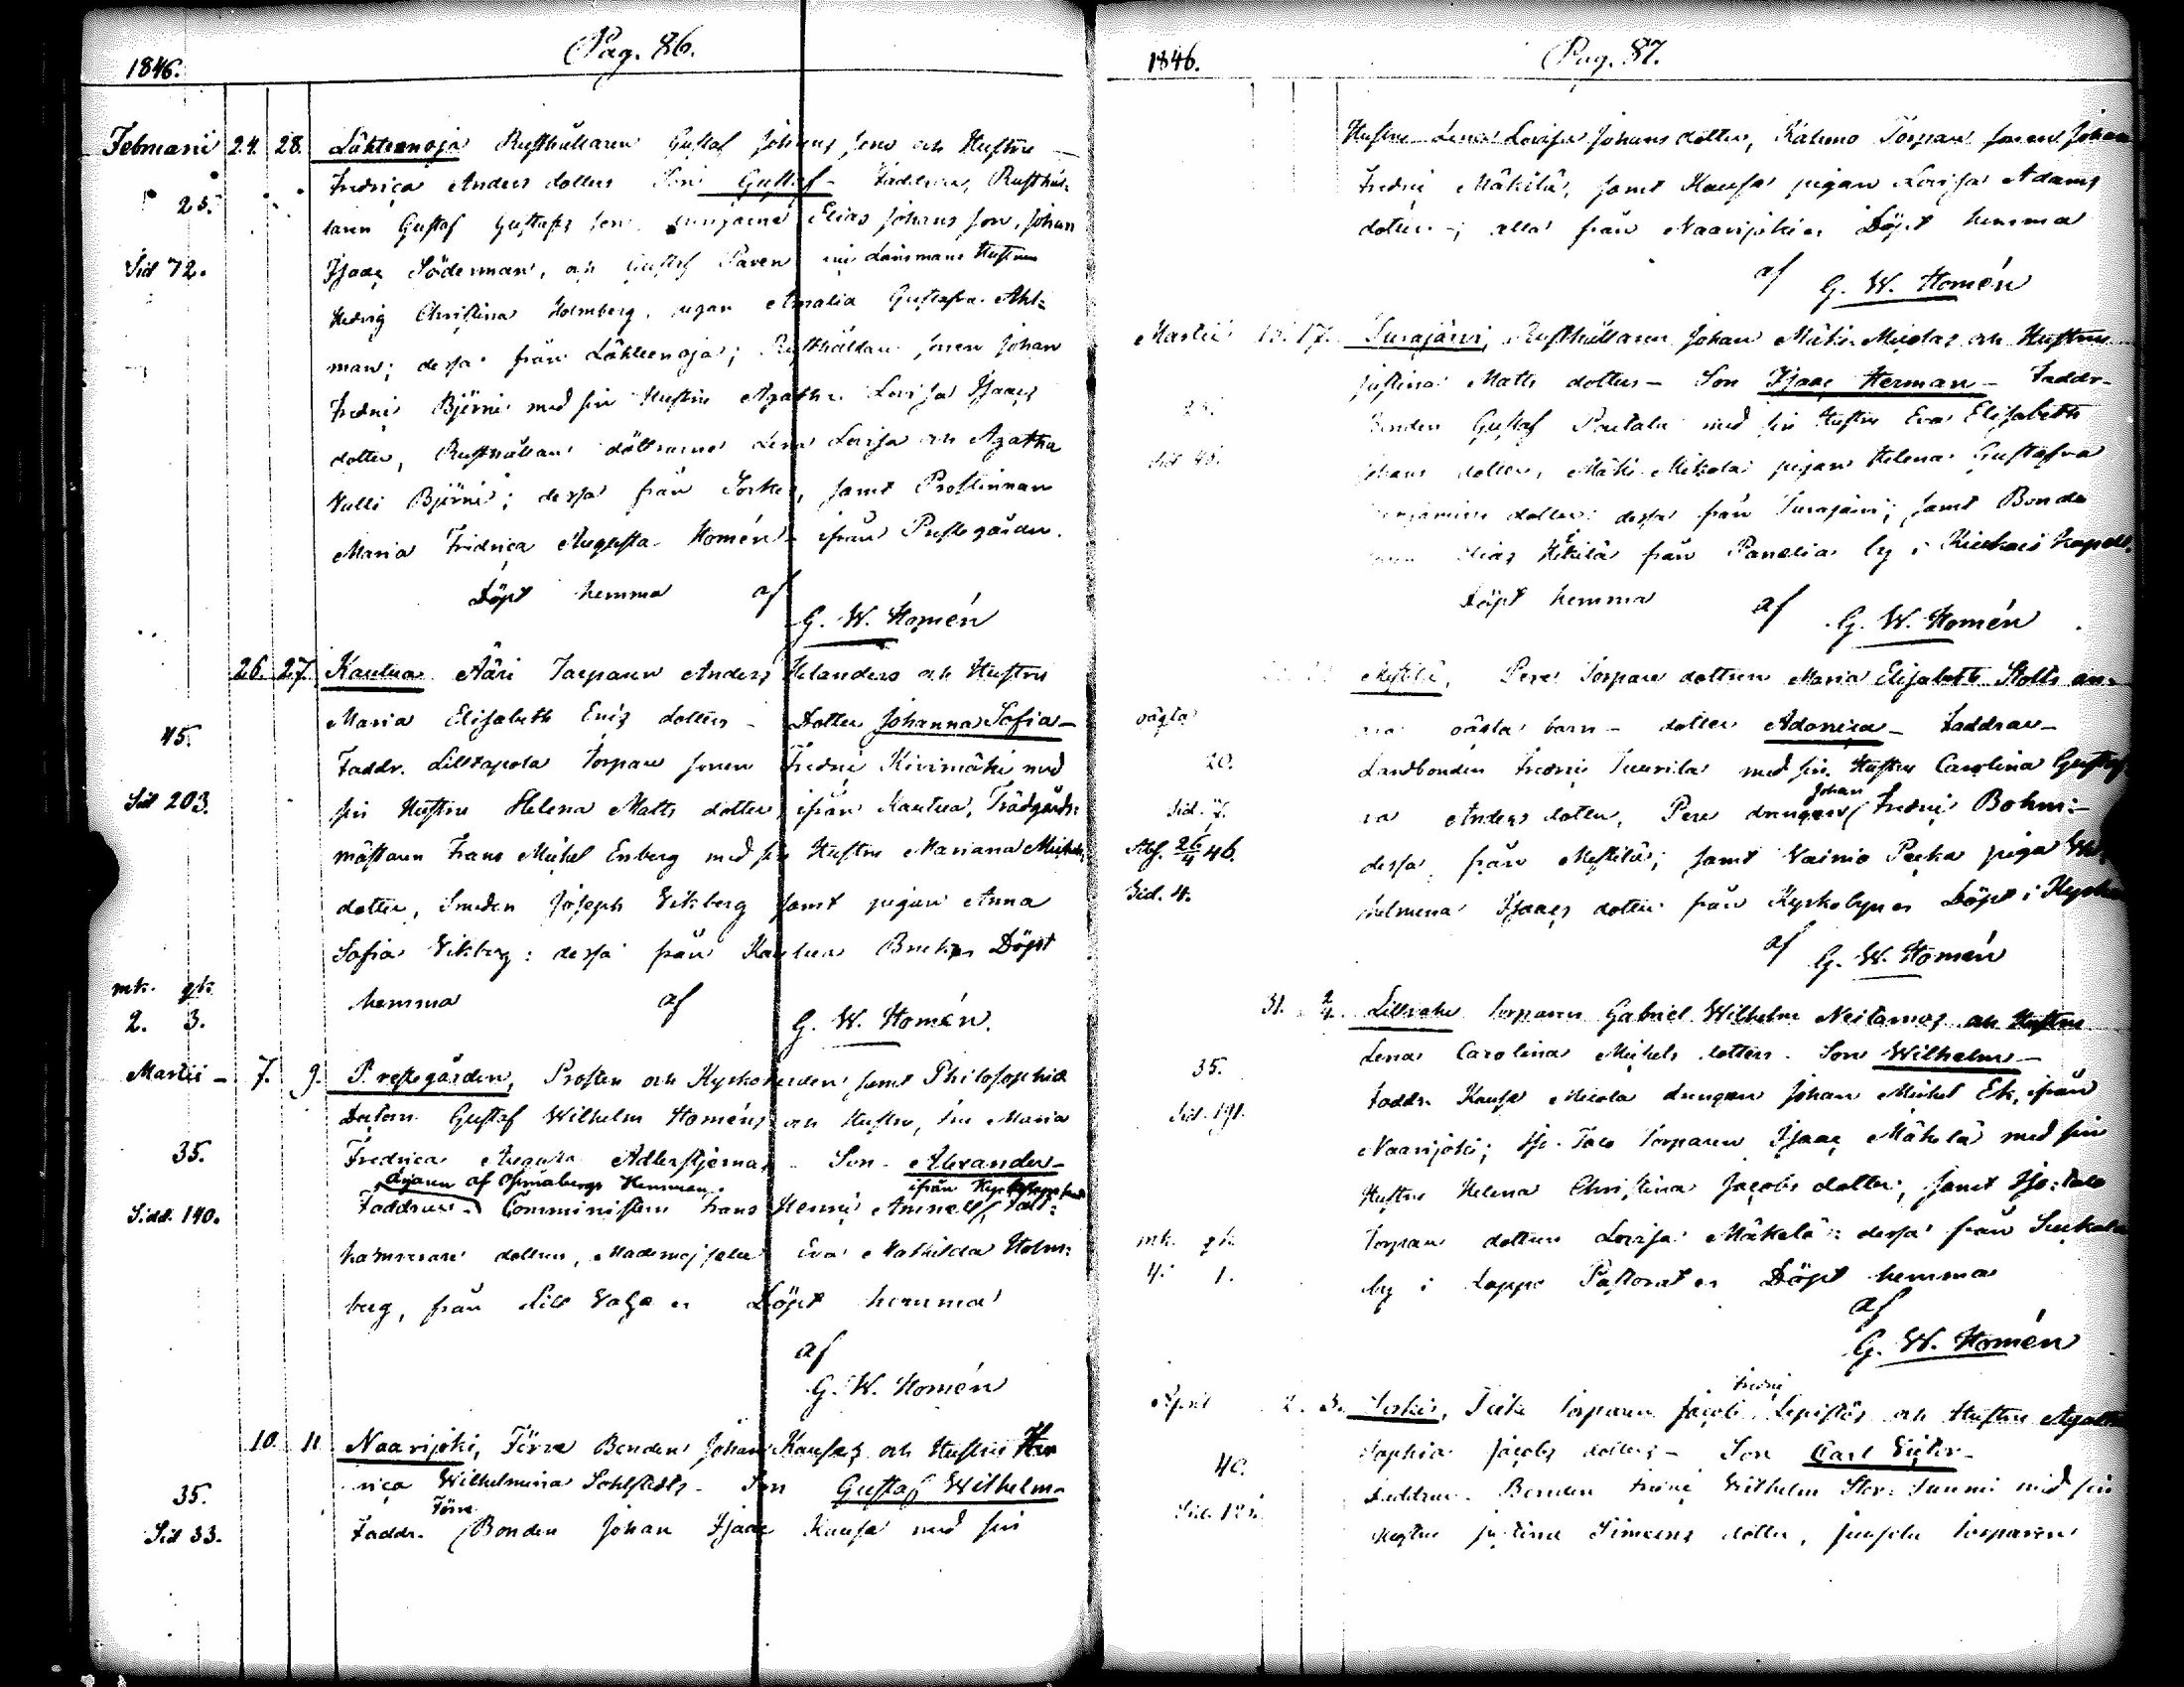 1846. Pag. 86.
Februarii 24. 28. Lähteenoja Rusthållaren Gustaf Johans sons och Hustrus
25. Fredrica Anders dotters Son Gustaf - Faddrar, Rusthål-
laren Gustaf Gustafs son, drängarne Elias Johans son, Johan
Sid 72. Isaac Söderman, och Gustaf Paven Länsmans Hustrun
Hedvig Christina Holmberg, pigan Amalia Gustafva Ahl-
man; dessa från Lähteenoja; Rusthållare sonen Johan
Fredric Björni med sin Hustru Agatha Lovisa Isaacs
dotter, Rusthållare döttrarne Lena Lovisa och Agatha
Valli Björni; dessa från Sorkis, samt Prostinnan
Maria Fredrica Augusta Homén ifrån Prestegården.
Döpt hemma af
G. W. Homén
26. 27. Kautua Ääri Torparen Anders Helanders och Hustrus
Maria Elisabeth Erics dotters - Dotter Johanna Sofia -
45.
Faddr. Lillkapola Torpare sonen Fredric Kivimäki med
Sid 203. sin Hustru Helena Matts dotter ifrån Kautua, Trädgårds-
mästaren Frans Michel Enberg med sin Hustru Mariana Michels
dotter, Smeden Joseph Vikberg samt pigan Anna
Sofia Vikberg: dessa från Kautua Bruk Döpt
mk. qk. hemma af
2. 3. G. W. Homén.
Martii - 7. 9. Prestegården, Prosten och Kyrkoherden samt Philosophiæ
Doctorn Gustaf Wilhelm Homéns och Hustrus, Fru Maria
35. Fredrica Augusta Adlerstjernas - Son - Alexander -
Ägaren af Hemman. ifrån
Sidd. 140. Faddrar - Comministern Frans Henric Amnell,
dottren, Mademoiselle Eva Mathilda Holm-
berg, från Döpt hemma
af
G. W. Homén
10. 11. Naarijoki, Förra Bonden Johan Kausas och Hustrus Hen
rica Wilhelmina Sohlstedts - Son Gustaf Wilhelm -
35. Förra
Sid 33. Faddr. Bonden Johan Isaac Kausa med sin
1846. Pag. 87.
Hustru Lena Lovisa Johans dotter, Kalimo Torpare sonen Johan
Fredric Mäkilä, samt Kausa pigan Lovisa Adams
dotter -; alla från Naarijoki Döpt hemma
af G. W. Homén
Martii 17. Turajärvi, Rusthållaren Johan Mäki Micolas och Hustrus
Justina Matts dotters - Son Isaac Herman - Faddr.
Bonden Gustaf med sin Hustru Eva Elisabeth
Johans dotter, Mäki Mikola pigan Helena Gustafva
dotter: dessa från Turajärvi; samt Bonde
Elias från Panelia by i Kiukais Kapell.
Döpt hemma af G. W. Homén
Mestilä, Pere Torpare dottren Maria Elisabeth Stolts an-
oägta oägta barn - dotter Adonica - Faddrar -
20. Landbonden Fredric Tuurila med sin Hustru Carolina Gustaf
Johan
Sid. 7. va Anders dotter, Pere drängen Fredric Bohm: -
Abs. 26/4 46. dessa från Mestilä; samt Vainio Pecka piga
Sid. 4. helmina Isaacs dotter från Kyrkobyn Döpt i Kyrkan
af G. W. Homén
31. 2/4. Torparen Gabriel Wilhelm Neitamos och Hustrus
35. Lena Carolina Michels dotters. Son Wilhelm -
Sid. 191. Faddr. Kausa Micola drängen Johan Michel Ek, ifrån
Naarijoki; Torparen Isaac Mäkelä med sin
Hustru Helena Christina Jacobs dotter, samt
mk. qk. Torpare dottren Lovisa Mäkelä: dessa från
4. 1. by i Lappo Pastorat Döpt hemma
af
G. W. Homén
Fredric
April 2. 3. Sorkis, Torparen Jacob Lepistös och Hustrus Agatha
Sophia Jacobs dotters - Son Carl Victor -
40. Faddrar. Bonden Fredric Wilhelm med sin
Hustru Justina Simeons dotter, Torparen